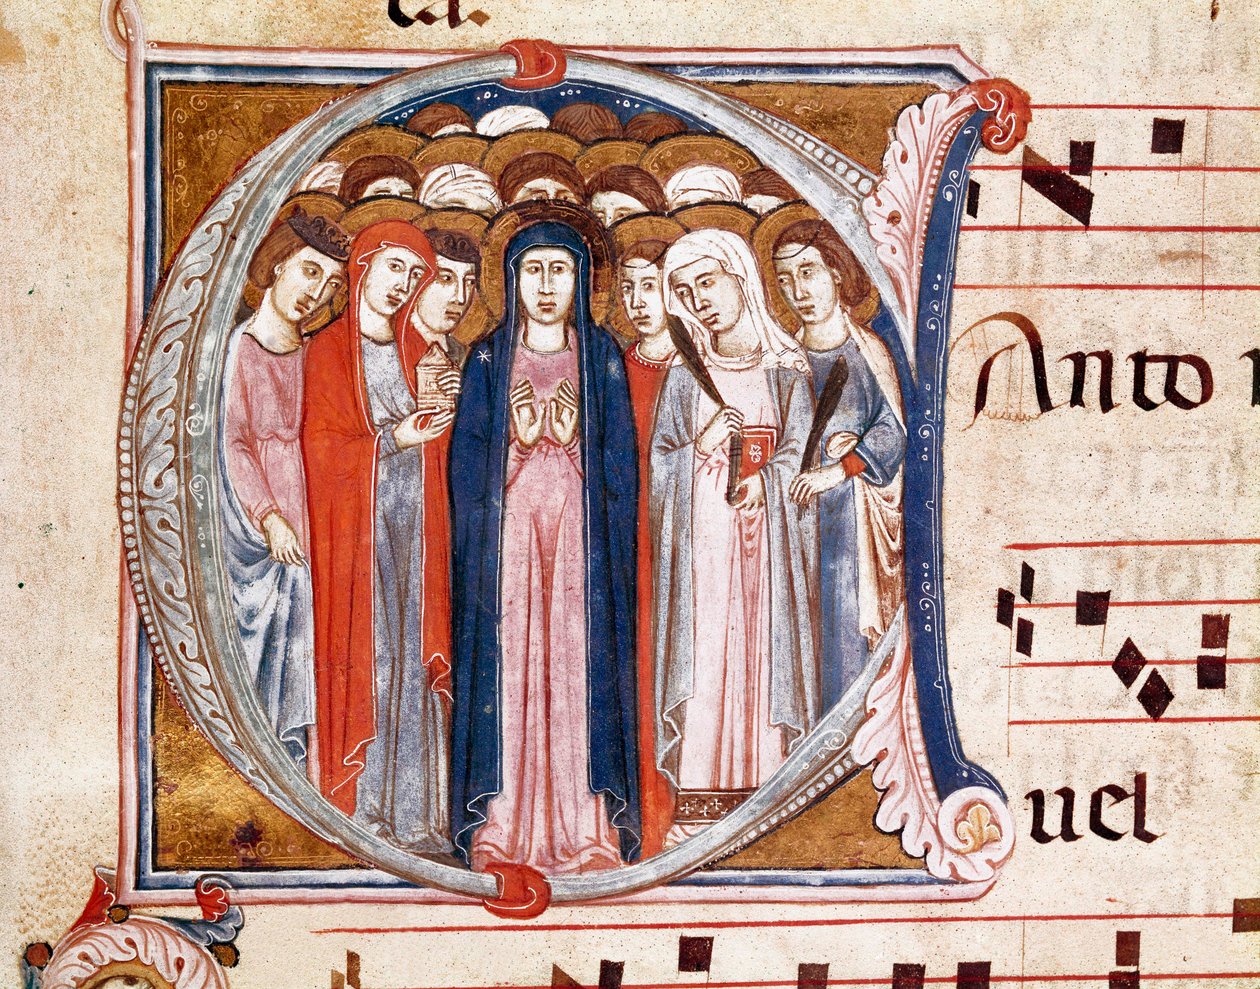 ta.
Anto
uel